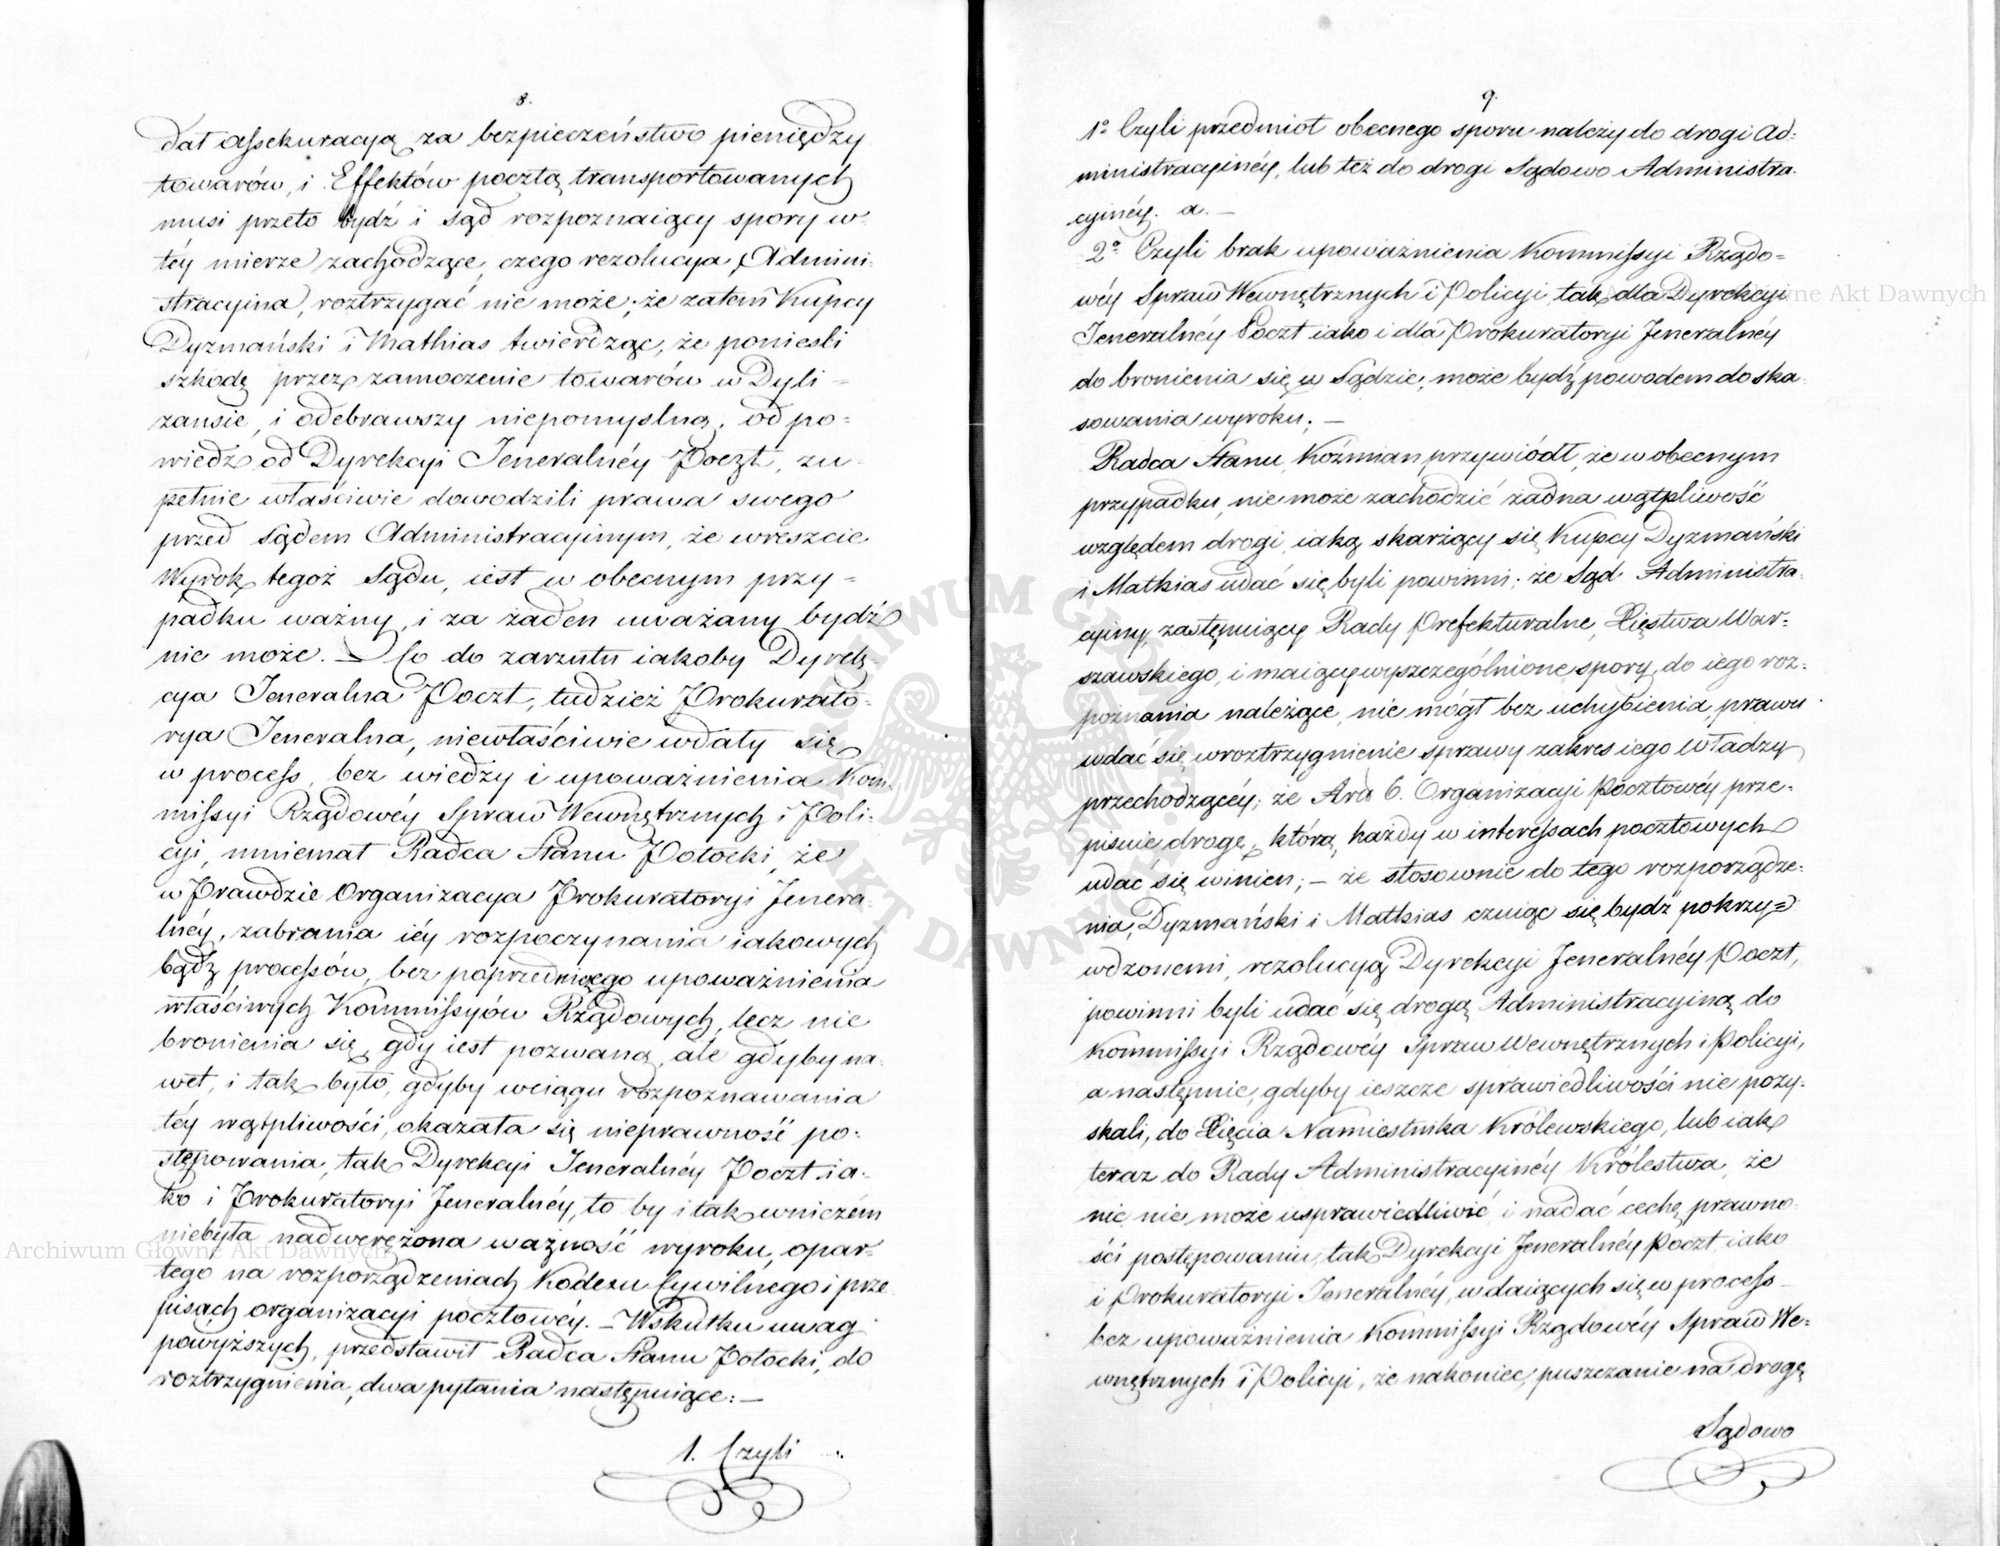 8.
dał assekuracyą za bezpieczeństwo pieniędzy
towarów, i Effektów pocztą transportowanych
musi przeto bydź i sąd rozpoznaiący spory w
téy mierze zachodzące, czego rezolucya Admini-
stracyina, roztrzygać nie może; że zatem Kupcy
Dyzmański i Mathias twierdząc, że ponieśli
szkodę przez zamoczenie towarów w Dyli =
zansie, i odebrawszy niepomyslną, od po =
wiedź od Dyrekcyi Jeneralnéy Poczt, zu -
pełnie właściwie dowodzili prawa swego
przed Sądem Administracyinym, że wreszcie
Wyrok tegoż Sądu, iest w obecnym przy =
padku ważny, i za żaden uważany bydź
nie może. — Co do zarzutu iakoby Dyrek-
cya Jeneralna Poczt, tudzież Prokurato-
rya Jeneralna, niewłaściwie wdały się
w process, bez wiedzy i upoważnienia Kom-
missyi Rządowéy Spraw Wewnętrznych i Poli-
cyi, mniemał Radca Stanu Potocki, że
w Prawdzie Organizacya Prokuratoryi Jenera-
lnéy, zabrania iéy rozpoczynania iakowych
bądź processów, bez poprzedniego upoważnienia
właściwych Kommissyów Rządowych, lecz nie
bronienia się, gdy iest pozwaną, ale gdyby na-
wet, i tak było, gdyby wciągu rozpoznawania
téy wątpliwości, okazała się nieprawność po-
stępowania, tak Dyrekcyi Jeneralnéy Poczt ia-
ko i Prokuratoryi Jeneralnéy, to by i tak wniczém
niebyła nadwerężona ważność wyroku, opar-
tego na rozporządzeniach Kodexu Cywilnego i prze
pisach organizacyi pocztowéy. — Wskutku uwag
powyższych, przedstawił Radca Stanu Potocki, do
roztrzygnienia, dwa pytania następuiące: —
1. Czyli
9.
1º Czyli przedmiot obecnego sporu należy do drogi Ad-
ministracyinéy, lub też do drogi Sądowo Administra-
cyinéy. a. —
2º Czyli brak upoważnienia Kommissyi Rządo =
wéy Spraw Wewnętrznych i Policyi, tak dla Dyrekcyi
Jeneralnéy Poczt iako i dla Prokuratoryi Jeneralnéy
do bronienia się w Sądzie, może bydź powodem do ska-
sowania wyroku; —
Radca Stanu, Koźmian, przywiódł, że w obecnym
przypadku, nie może zachodzić żadna wątpliwość
względem drogi, iaką skarżący się Kupcy Dyzmański
i Mathias udać się byli powinni; że Sąd Administra-
cyiny, zastępuiący Rady Prefekturalne, Xięstwa War-
szawskiego, i maiący wyszczególnione spory, do iego roz-
poznania należące, nie mógł bez uchybienia, prawu
wdać się wroztrzygnienie sprawy zakres iego Władzy
przechodzącéy; że Art 6. Organizacyi Pocztowéy prze-
pisuie drogę, którą, każdy w interessach pocztowych
udać się winien; — że stosownie do tego rozporządze-
nia, Dyzmański i Mathias czuiąc się bydź pokrzy =
wdzonemi, rezolucyą Dyrekcyi Jeneralnéy Poczt,
powinni byli udać się drogą Administracyiną do
Kommissyi Rządowéy Spraw Wewnętrznych i Policyi,
a następnie, gdyby ieszcze sprawiedliwości nie pozy-
skali, do Xięcia Namiestnika Królewskiego, lub iak
teraz do Rady Administracyinéy Królestwa, że
nic nie może usprawiedliwić i nadać cechę prawno-
ści postępowaniu, tak Dyrekcyi Jeneralnéy Poczt iako
i Prokuratoryi Jeneralnéy, wdaiących się w process
bez upoważnienia Kommissyi Rządowéy Spraw We-
wnętrznych i Policyi, że nakoniec, puszczanie na drogę
Sądowo
Archiwum Główne Akt Dawnych